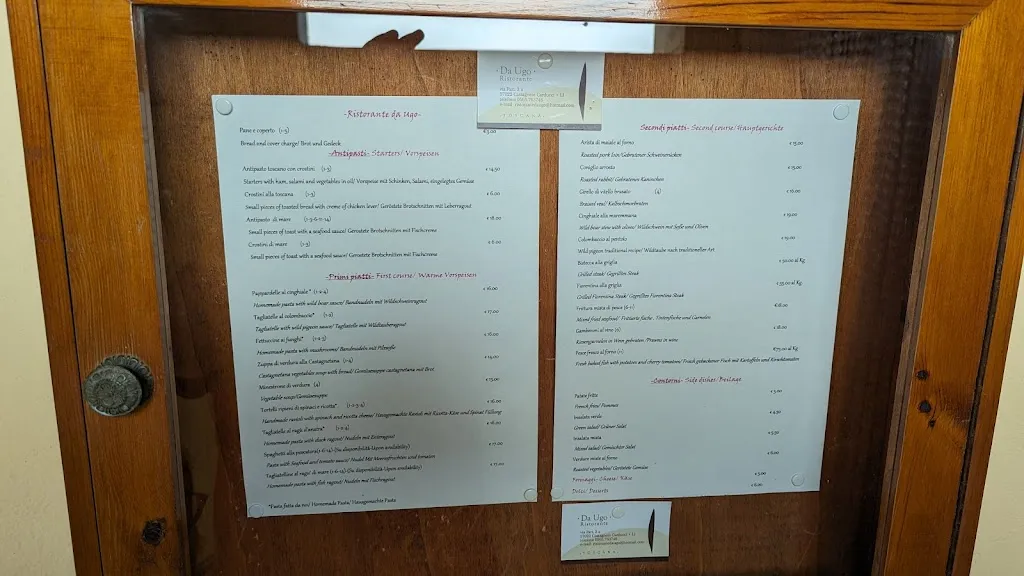 · Da Ugo ·
Ristorante
via Pari, 3 a
57022 Castagneto Carducci - LI
TOSCANA
-Ristorante da Ugo-
Pane e coperto (1-3) € 3.00
Bread and cover charge/ Brot und Gedeck
-Antipasti- Starters/ Vorspeisen
Antipasto toscano con crostini (1-3) € 14,50
Starters with ham, salami and vegetables in oil/ Vorspeise mit Schinken, Salami, eingelegtes Gemüse
Crostini alla toscana (1-3) € 6.00
Small pieces of toasted bread with creme of chicken liver/ Geröstete Brotschnitten mit Leberragout
Antipasto di mare (1-3-6-11-14) € 18.00
Small pieces of toast with a seafood sauce/ Geröstete Brotschnitten mit Fischcreme
Crostini di mare (1-3) € 8.00
Small pieces of toast with a seafood sauce/ Geröstete Brotschnitten mit Fischcreme
-Primi piatti- First course/ Warme Vorspeisen
Pappardelle al cinghiale* (1-2-4) € 16.00
Homemade pasta with wild boar sauce/ Bandnudeln mit Wildschweinragout
Tagliatelle al colombaccio* € 17.00
Tagliatelle with wild pigeon sauce/ Tagliatelle mit Wildtauberagout
Fettuccine ai funghi* (1-2-3) € 16.00
Homemade pasta with mushrooms/ Bandnudeln mit Pilzsoße
Zuppa di verdura alla Castagnetana (1-4)
Castagnetana vegetables soup with bread/ Gemüsesuppe castagnetana mit Brot
Minestrone di verdura (4)
Vegetable soup/Gemüsesuppe
Tortelli ripieni di spinaci e ricotta* (1-2-3-4) € 16.00
Handmade ravioli with spinach and ricotta cheese/ Hausgemachte Ravioli mit Ricotta-Käse und Spinat Füllung
Tagliatelle al ragù d'anatra* (1-2-4) € 16.00
Homemade pasta with duck ragout/ Nudeln mit Entenragout
Spaghetti alla pescatora(1-6-14) (Su disponibilità-Upon availability) € 17.00
Pasta with Seafood and tomato sauce/ Nudel Mit Meeresfruchten und tomaten
Tagliatelline al ragu' di mare (1-6-14) (Su disponibilità-Upon availability)
Homemade pasta with fish ragout/ Nudeln mit Fischragout
*Pasta fatta da noi/ Homemade Pasta/ Hausgemachte Pasta
Secondi piatti- Second course/Hauptgerichte
Arista di maiale al forno € 15.00
Roasted pork loin/Gebratener Schweinerücken
Coniglio arrosto € 15.00
Roasted rabbit/ Gebratenes Kaninchen
Girello di vitello brasato (4) € 16.00
Braised veal/ Kalbschmorbraten
Cinghiale alla maremmana € 19.00
Wild boar stew with olives/ Wildschwein mit Soße und Oliven
Colombaccio al pentolo € 19.00
Wild pigeon traditional recipe/ Wildtaube nach traditioneller Art
Bistecca alla griglia € 50.00 al Kg
Grilled steak/ Gegrilltes Steak
Fiorentina alla griglia € 55.00 al Kg
Grilled Fiorentina Steak/ Gegrilltes Fiorentina Steak
Frittura mista di pesce €18.00
Mixed fried seafood/
Gamberoni al vino € 18.00
Riesengarnelen in Wein gebraten /Prawns in wine
Pesce fresco al forno
Fresh baked fish with potatoes and cherry tomatoes/ Frisch gebackener Fisch mit Kartoffeln und Kirschtomaten
-Contorni- Side dishes/Beilage
Patate fritte € 5.00
French fries/ Pommes
Insalata verde € 4,50
Green salad/ Grüner Salat
Insalata mista € 5,50
Mixed salad/ Gemischter Salat
Verdure miste al forno € 6.00
Roasted vegetables/ Geröstete Gemüse
Formaggi- Cheese/ Käse € 5.00
Dolci/ Desserts € 6.00
· Da Ugo ·
Ristorante
via Pari, 3 a
57022 Castagneto Carducci - LI
TOSCANA